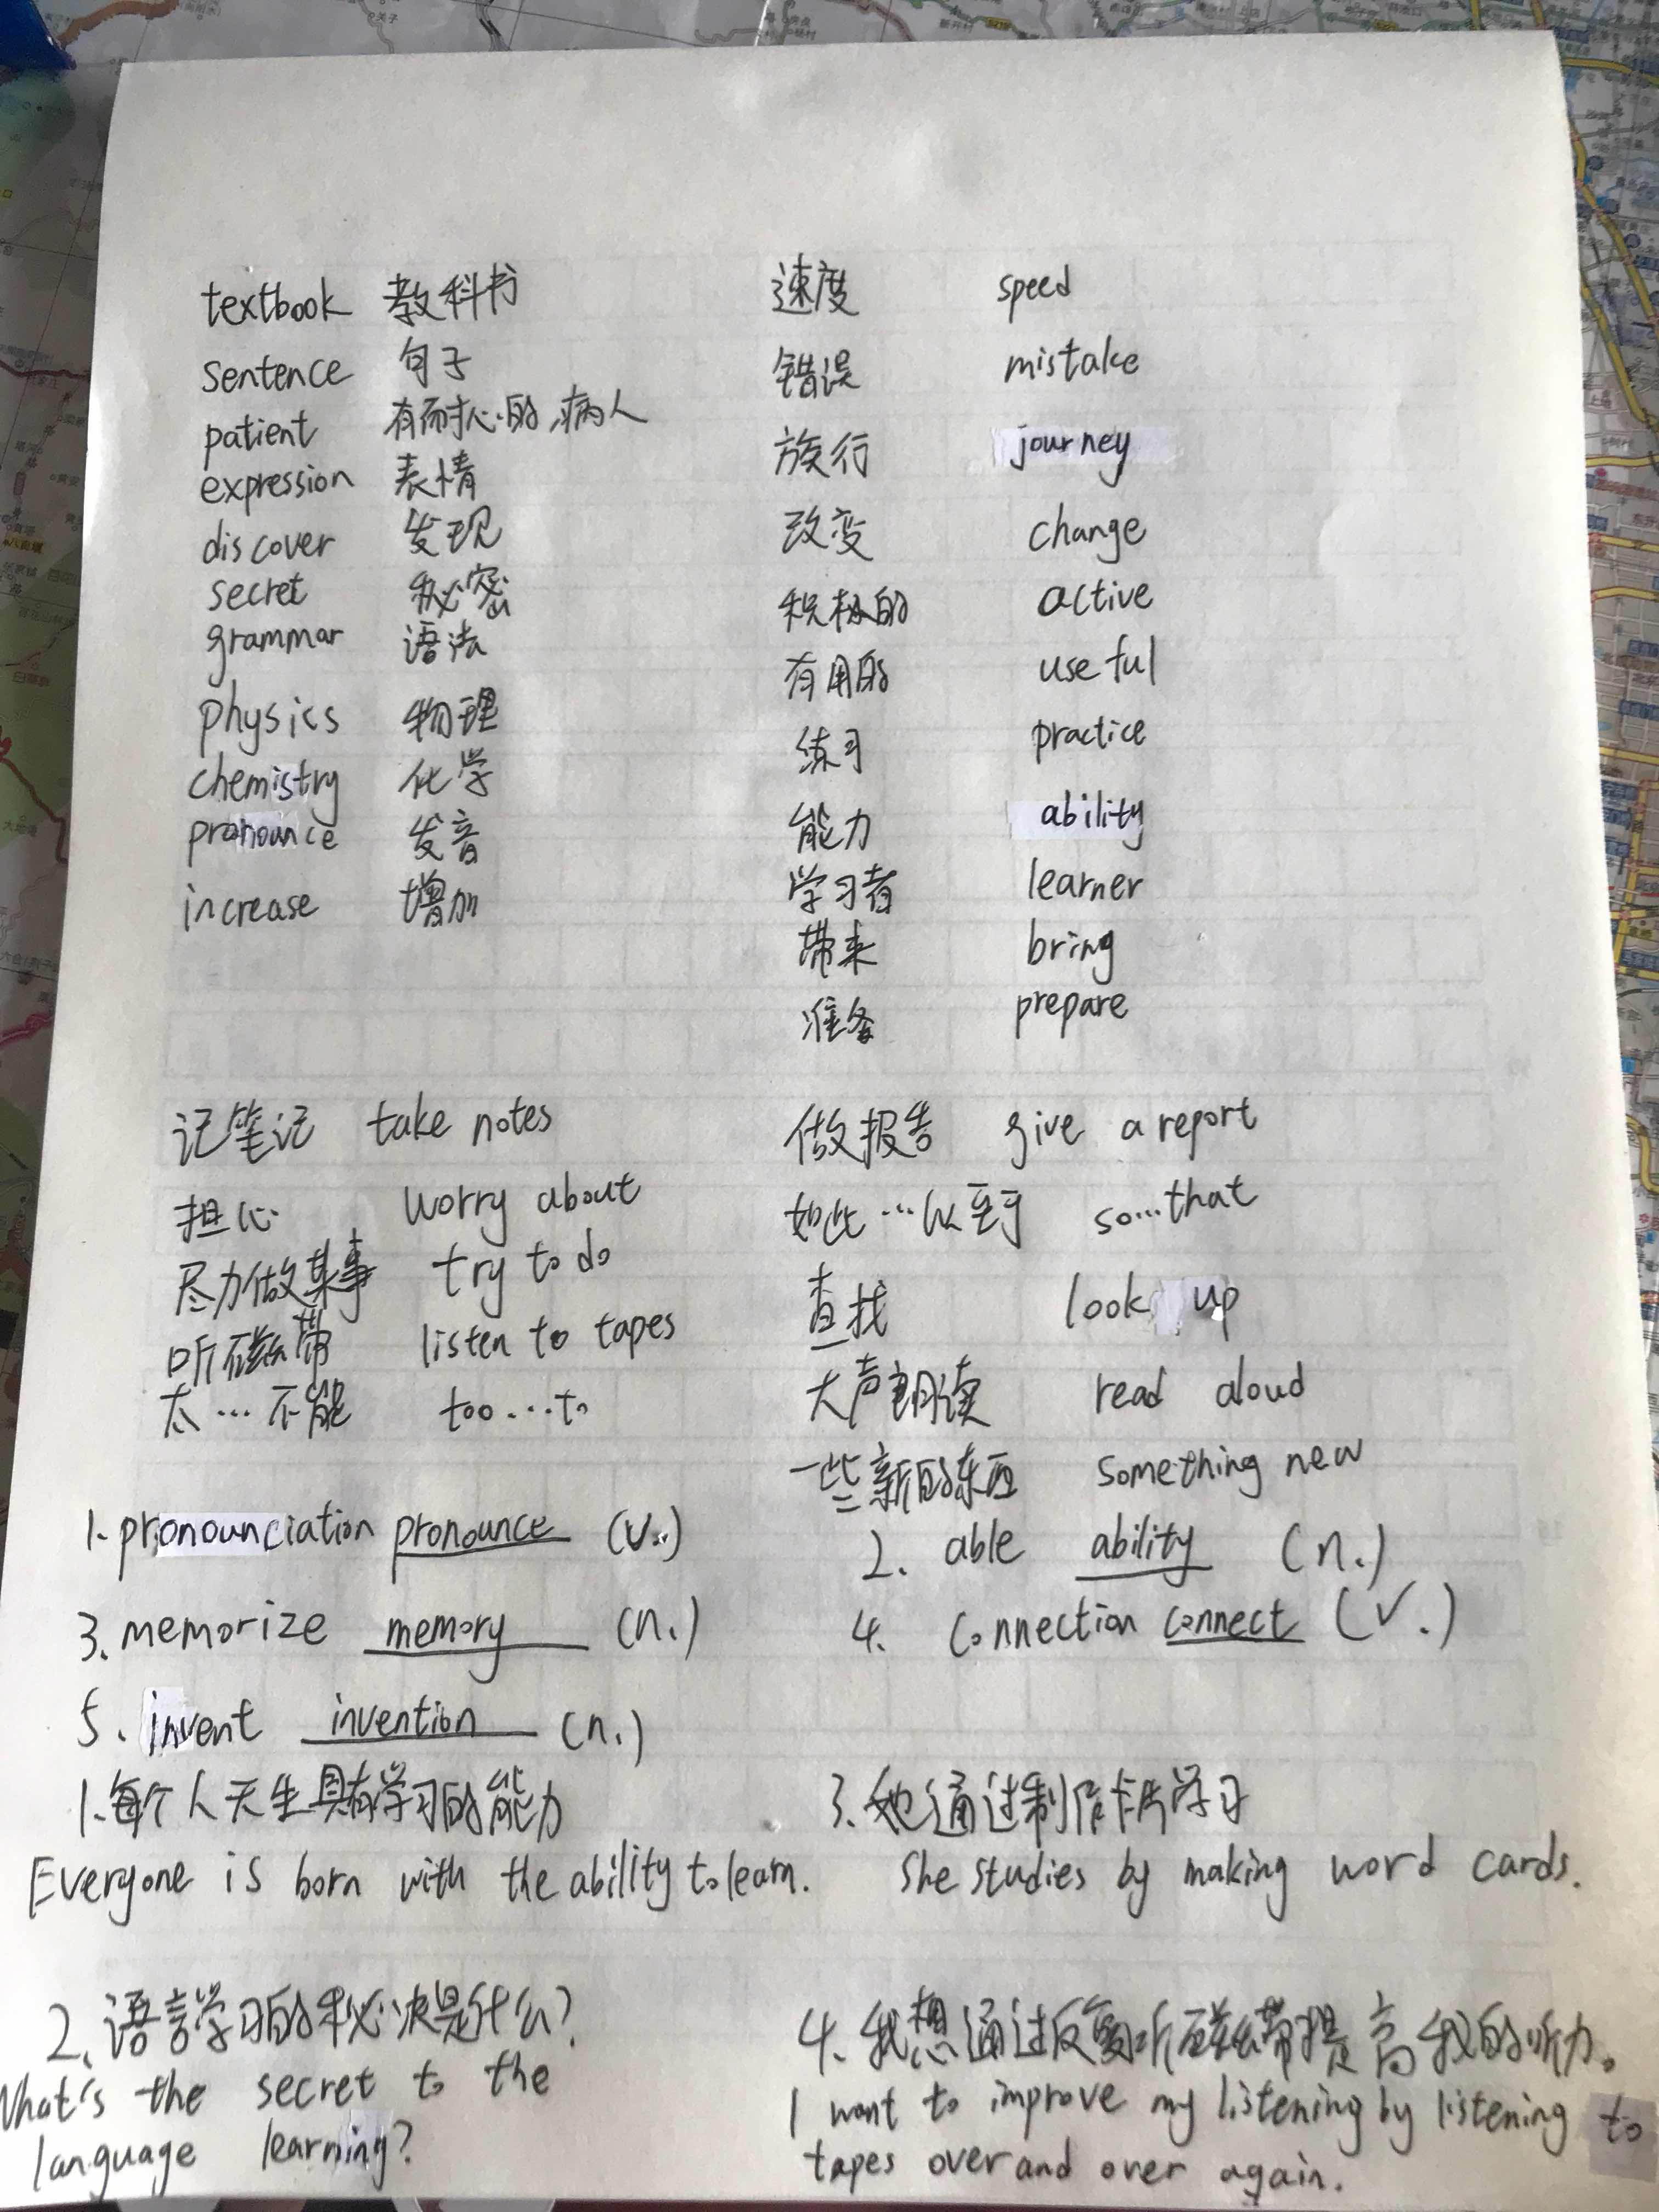 textbook 教科书
sentence 句子
patient 有耐心的,病人
expression 表情
discover 发现
secret 秘密
grammar 语法
physics 物理
chemistry 化学
pronounce 发音
increase 增加
速度 speed
错误 mistake
旅行 journey
改变 change
积极的 active
有用的 useful
练习 practice
能力 ability
学习者 learner
带来 bring
准备 prepare
记笔记 take notes
担心 worry about
尽力做某事 try to do
听磁带 listen to tapes
太…不能 too...to
做报告 give a report
如此…以至于 so...that
查找 look up
大声朗读 read aloud
一些新的东西 something new
1. pronounciation pronounce (v.)
2. able ability (n.)
3. memorize memory (n.)
4. connection connect (v.)
5. invent invention (n.)
1.每个人天生具有学习的能力
Everyone is born with the ability to learn.
2、语言学习的秘决是什么?
What's the secret to the
language learning?
3.她通过制作卡片学习
She studies by making word cards.
4、我想通过反复听磁带提高我的听力。
I want to improve my listening by listening to
tapes over and over again.